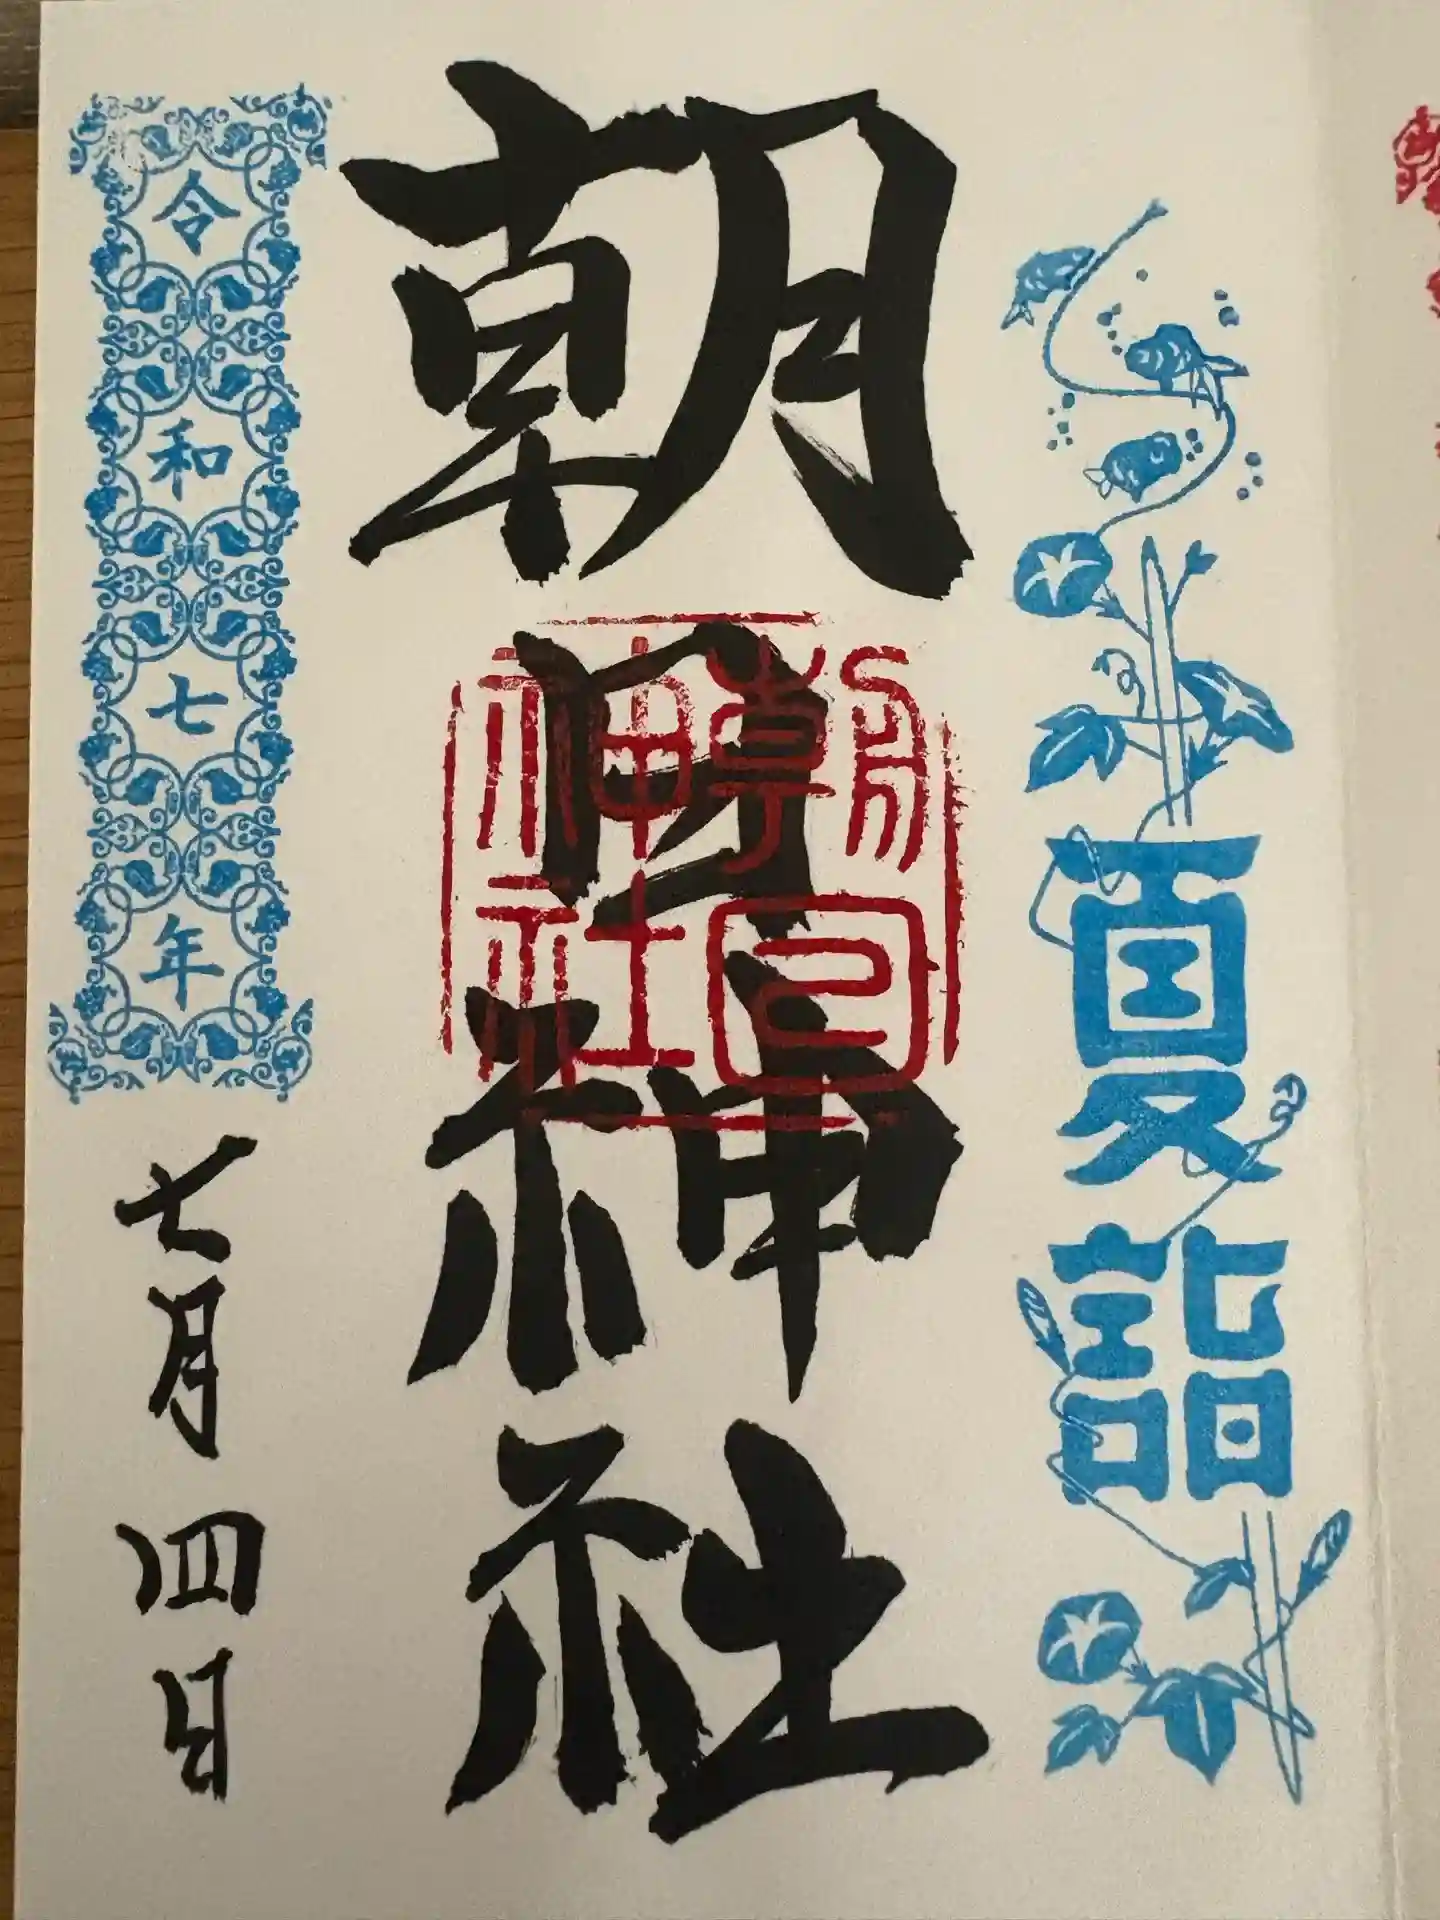 夏詣
朝日神社
朝日
神社
令和七年
七月四日